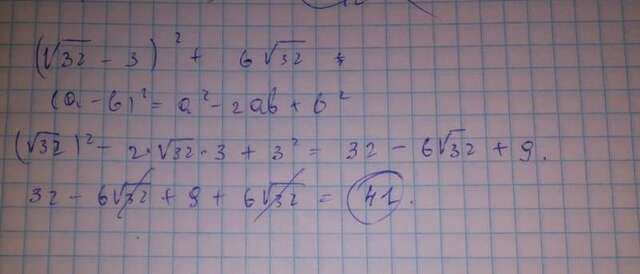 (√32 - 3)² + 6√32
(a - b)² = a² - 2ab + b²
(√32)² - 2·√32·3 + 3² = 32 - 6√32 + 9.
32 - 6√32 + 9 + 6√32 = 41.